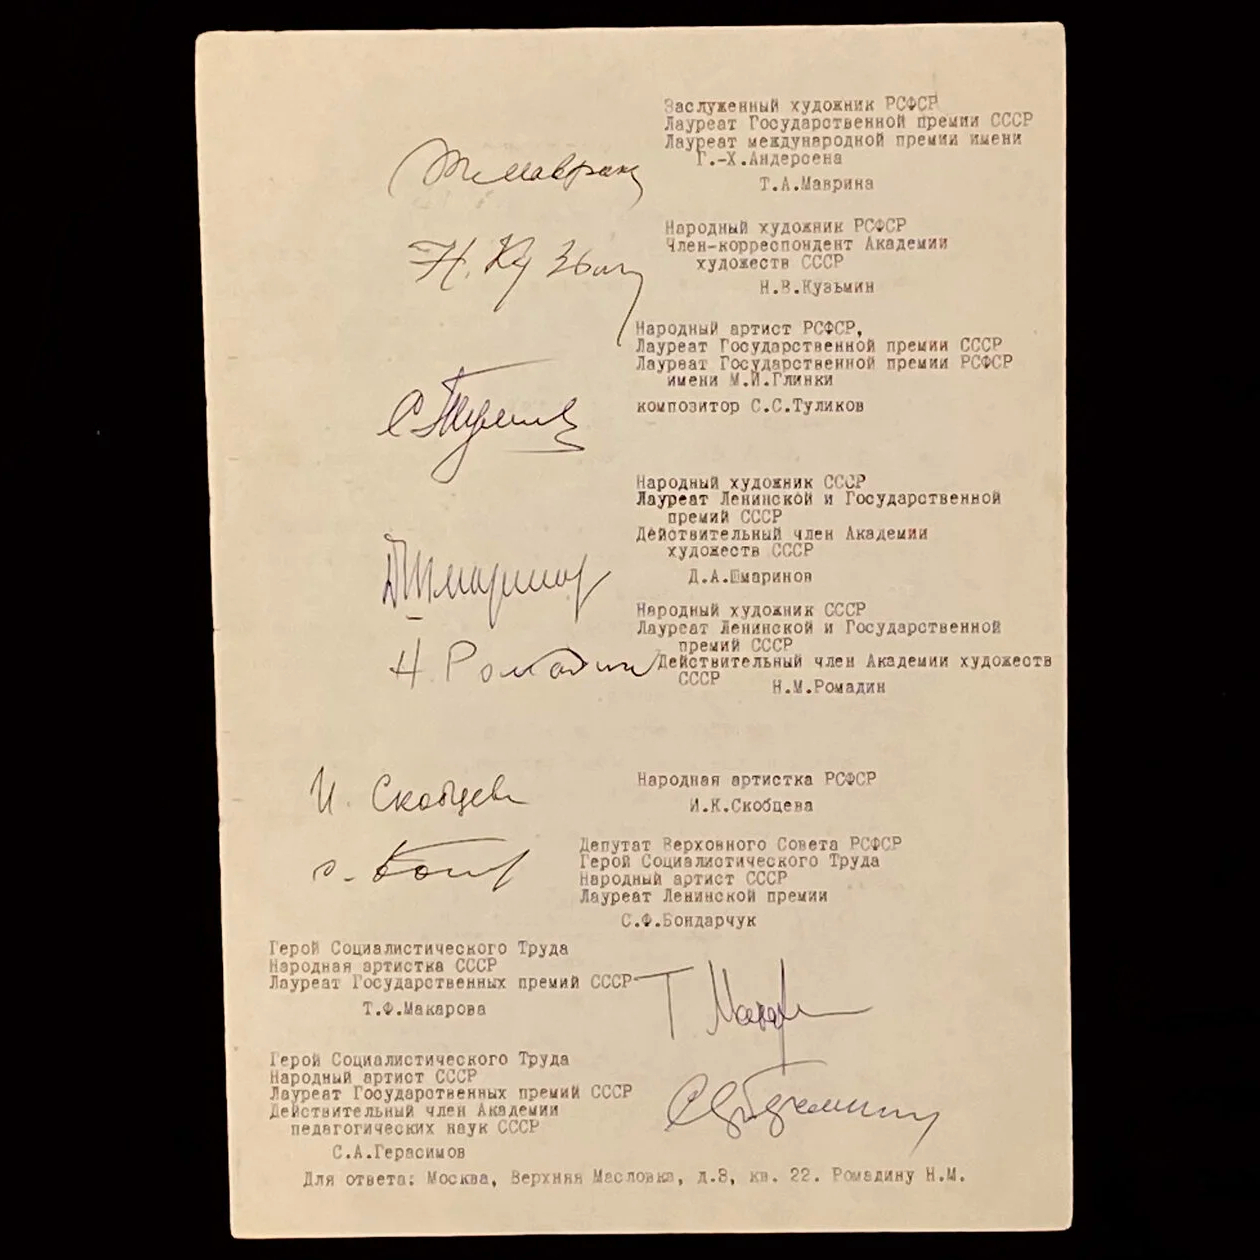 Заслуженный художник РСФСР
Лауреат Государственной премии СССР
Лауреат международной премии имени
Г.-Х.Андерсена
Т.А.Маврина
Т. Маврина
Народный художник РСФСР
Член-корреспондент Академии
художеств СССР
Н.В.Кузьмин
Н. Кузьмин
Народный артист РСФСР,
Лауреат Государственной премии СССР
Лауреат Государственной премии РСФСР
имени М.И.Глинки
композитор С.С.Туликов
С Туликов
Народный художник СССР
Лауреат Ленинской и Государственной
премий СССР
Действительный член Академии
художеств СССР
Д.А.Шмаринов
Д Шмаринов
Народный художник СССР
Лауреат Ленинской и Государственной
премий СССР
Действительный член Академии художеств
СССР
Н.М.Ромадин
Н. Ромадин
Народная артистка РСФСР
И.К.Скобцева
И. Скобцева
Депутат Верховного Совета РСФСР
Герой Социалистического Труда
Народный артист СССР
Лауреат Ленинской премии
С.Ф.Бондарчук
Герой Социалистического Труда
Народная артистка СССР
Лауреат Государственных премий СССР
Т.Ф.Макарова
Т Макар
Герой Социалистического Труда
Народный артист СССР
Лауреат Государственных премий СССР
Действительный член Академии
педагогических наук СССР
С.А.Герасимов
Для ответа: Москва, Верхняя Масловка, д.8, кв. 22. Ромадину Н.М.